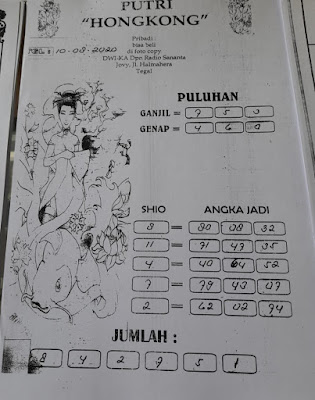 PUTRI
"HONGKONG"
Pribadi :
bisa beli
di foto copy
DWI-KA Dpn Radio Sananta
Jl. Halmahera
Tegal
10-08-2020
PULUHAN
GANJIL = 7 5 0
GENAP = 4 6 0
SHIO ANGKA JADI
8 = 80 08 32
11 = 71 47 35
4 = 40 64 52
7 = 79 43 07
2 = 62 02 94
JUMLAH :
8 4 2 7 5 1